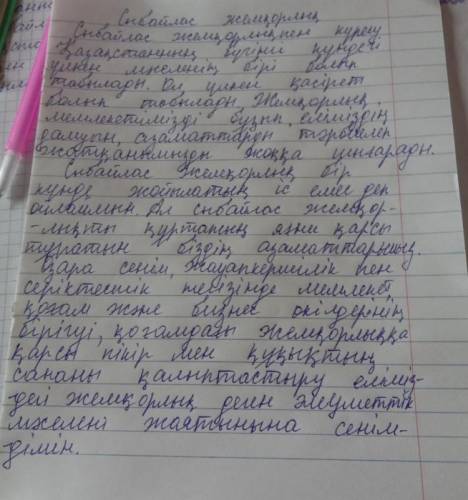 Сыбайлас жемқорлық
Сыбайлас жемқорлықпен күресу
Қазақстанның бүгінгі күндегі
үлкен мәселенің бірі болып
табылады. Ол үлкен қасірет
болып табылады. Жемқорлық
мемлекетімізді бұзып, еліміздің
дамуын, азаматтарды тәрбиелеп
жатқанымызды жоққа шығарады.
Сыбайлас жемқорлық бір
күнде жойылатын іс емес деп
ойлаймын. Ал сыбайлас жемқор-
-лықты құртатын яғни қарсы
тұратын біздің азаматтарымыз.
Өзара сенім, жауапкершілік пен
серіктестік негізінде мемлекет,
қоғам және бизнес өкілдерінің
бірігуі, қоғамдағы жемқорлыққа
қарсы пікір мен құқықтың
сананы қалыптастыру еліміз-
дегі жемқорлық деген әлеуметтік
мәселені жоятынына сенім-
дімін.